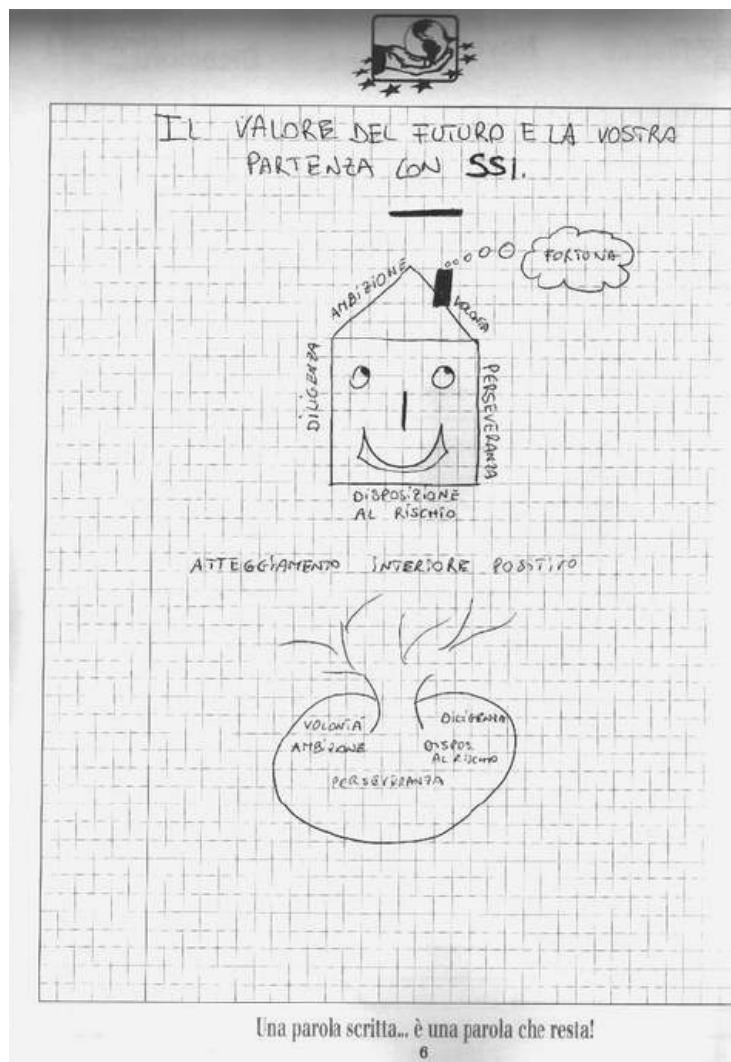 IL VALORE DEL FUTURO E LA VOSTRA
PARTENZA CON SSI.
FORTUNA
AMBIZIONE
VOLONTA
DILIGENZA
PERSEVERANZA
DISPOSIZIONE
AL RISCHIO
ATTEGGIAMENTO INTERIORE POSITIVO
VOLONTÀ
DILIGENZA
AMBIZIONE
DISPOS.
AL RISCHIO
PERSEVERANZA
Una parola scritta... è una parola che resta!
6